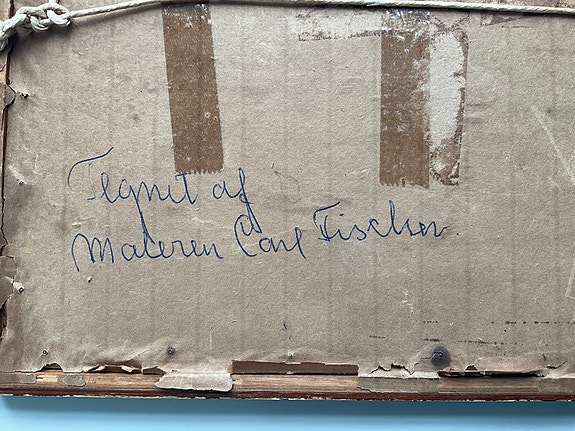 Tegnet af
Maleren Carl Fischer.